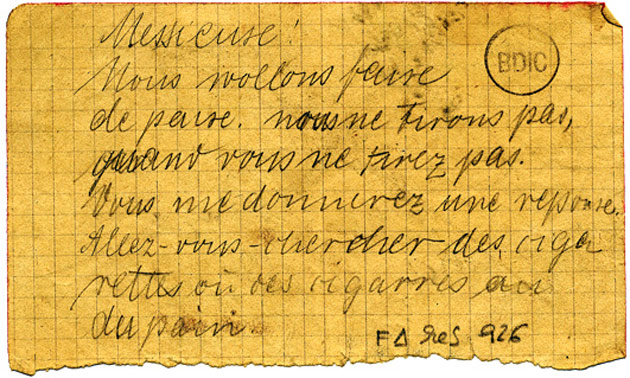 Messieuse!
BDIC
Nous wollons faire
de paire. nous ne tirons pas,
quand vous ne tirez pas.
Vous me donnerez une reponse.
Allez-vous-chercher des ciga
rettes ou des cigarres au
du pain
F∆ 926